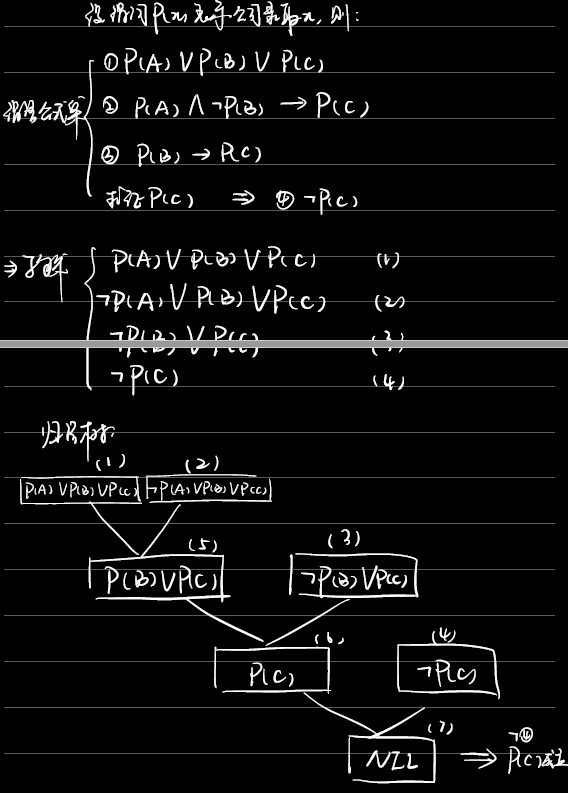 设谓词P(x)表示公司录取x,则:
① P(A) ∨ P(B) ∨ P(C)
② P(A) ∧ ¬P(B) → P(C)
谓词公式
③ P(B) → P(C)
求证P(C) ⇒ ④ ¬P(C)
⇒子句 P(A) ∨ P(B) ∨ P(C) (1)
¬P(A) ∨ P(B) ∨ P(C) (2)
¬P(B) ∨ P(C) (3)
¬P(C) (4)
归结树:
(1) (2)
P(A) ∨ P(B) ∨ P(C) ¬P(A) ∨ P(B) ∨ P(C)
(5) (3)
P(B) ∨ P(C) ¬P(B) ∨ P(C)
(6) (4)
P(C) ¬P(C)
(7) ¬④
NIL ⇒ P(C)成立